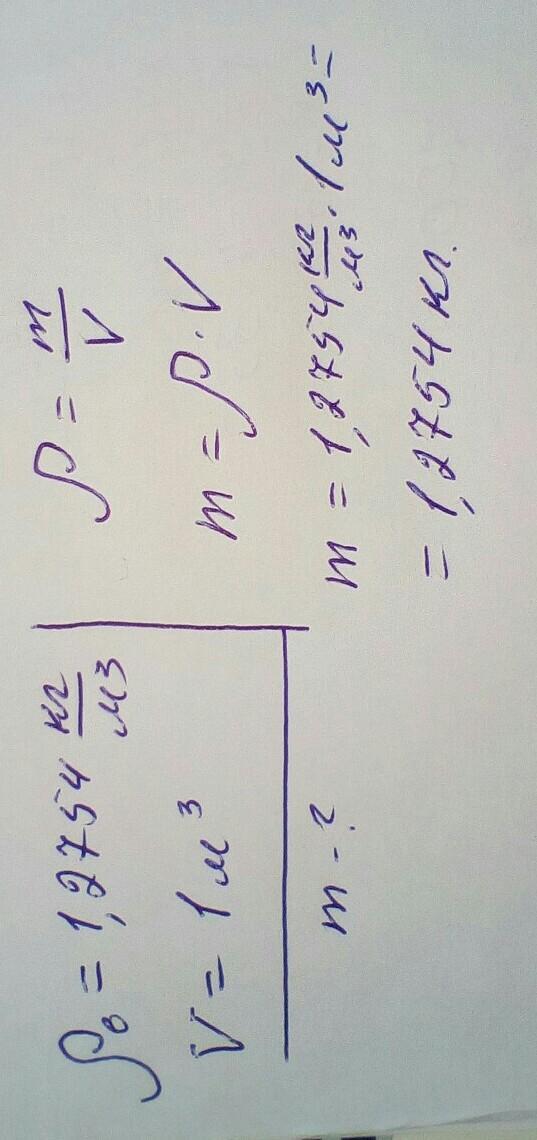 ρ₀ = 1,2754 кг/м³
V = 1 м³
m - ?
ρ = m/V
m = ρ · V
m = 1,2754 кг/м³ · 1 м³ =
= 1,2754 кг.